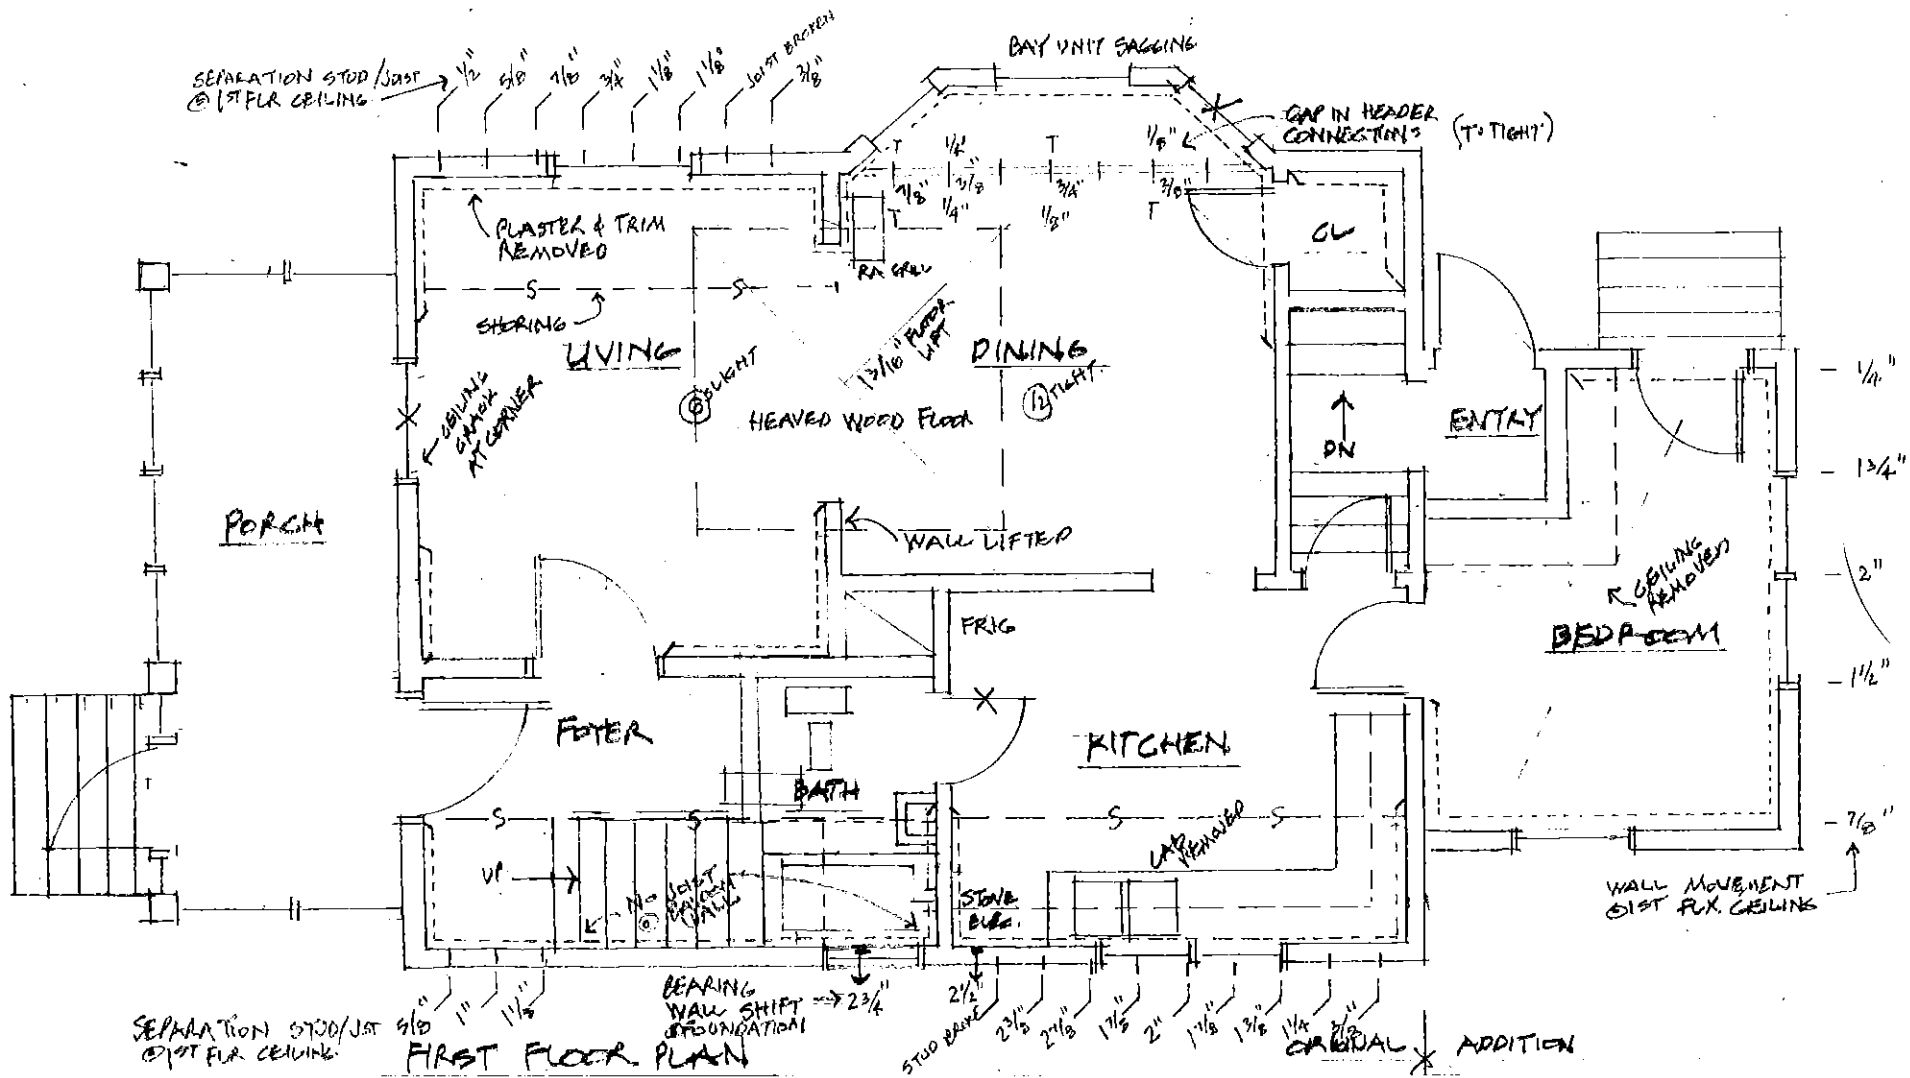 BAY UNIT SAGGING
SEPARATION STUD/JOIST
@ 1ST FLR CEILING
1/2" 5/8" 7/8" 3/4" 1 1/8" 1 1/8" JOIST BROKEN 3/8"
GAP IN HEADER
CONNECTIONS (T: TIGHT)
T 1/4" T 1/8"
7/8" 3/8" 3/4" 3/8"
T 1/4" 1/8" T
PLASTER & TRIM
REMOVED
CL
RA GRILL
S S
SHORING
LIVING
13/16" FLOOR
LIFT
DINING
SLIGHT
1/2 TIGHT
HEAVED WOOD FLOOR
CEILING
CRACK
AT CORNER
DN
ENTRY
1/4"
1 3/4"
2"
1 1/2"
7/8"
PORCH
WALL LIFTED
CEILING
REMOVED
BEDROOM
FRIG
FOYER
BATH
KITCHEN
T
S S S S
UP
NO JOIST
@
WALL
REMOVED
STOVE
ELEC.
WALL MOVEMENT
@ 1ST FLR. CEILING
SEPARATION STUD/JST
@ 1ST FLR CEILING
5/8" 1" 1 1/8"
BEARING
WALL SHIFT
@ FOUNDATION
2 3/4"
2 1/2"
STUD BROKE
2 3/8" 2 7/8" 1 7/8" 2" 1 7/8" 1 3/8" 1 1/4"
FIRST FLOOR PLAN
ORIGINAL ADDITION